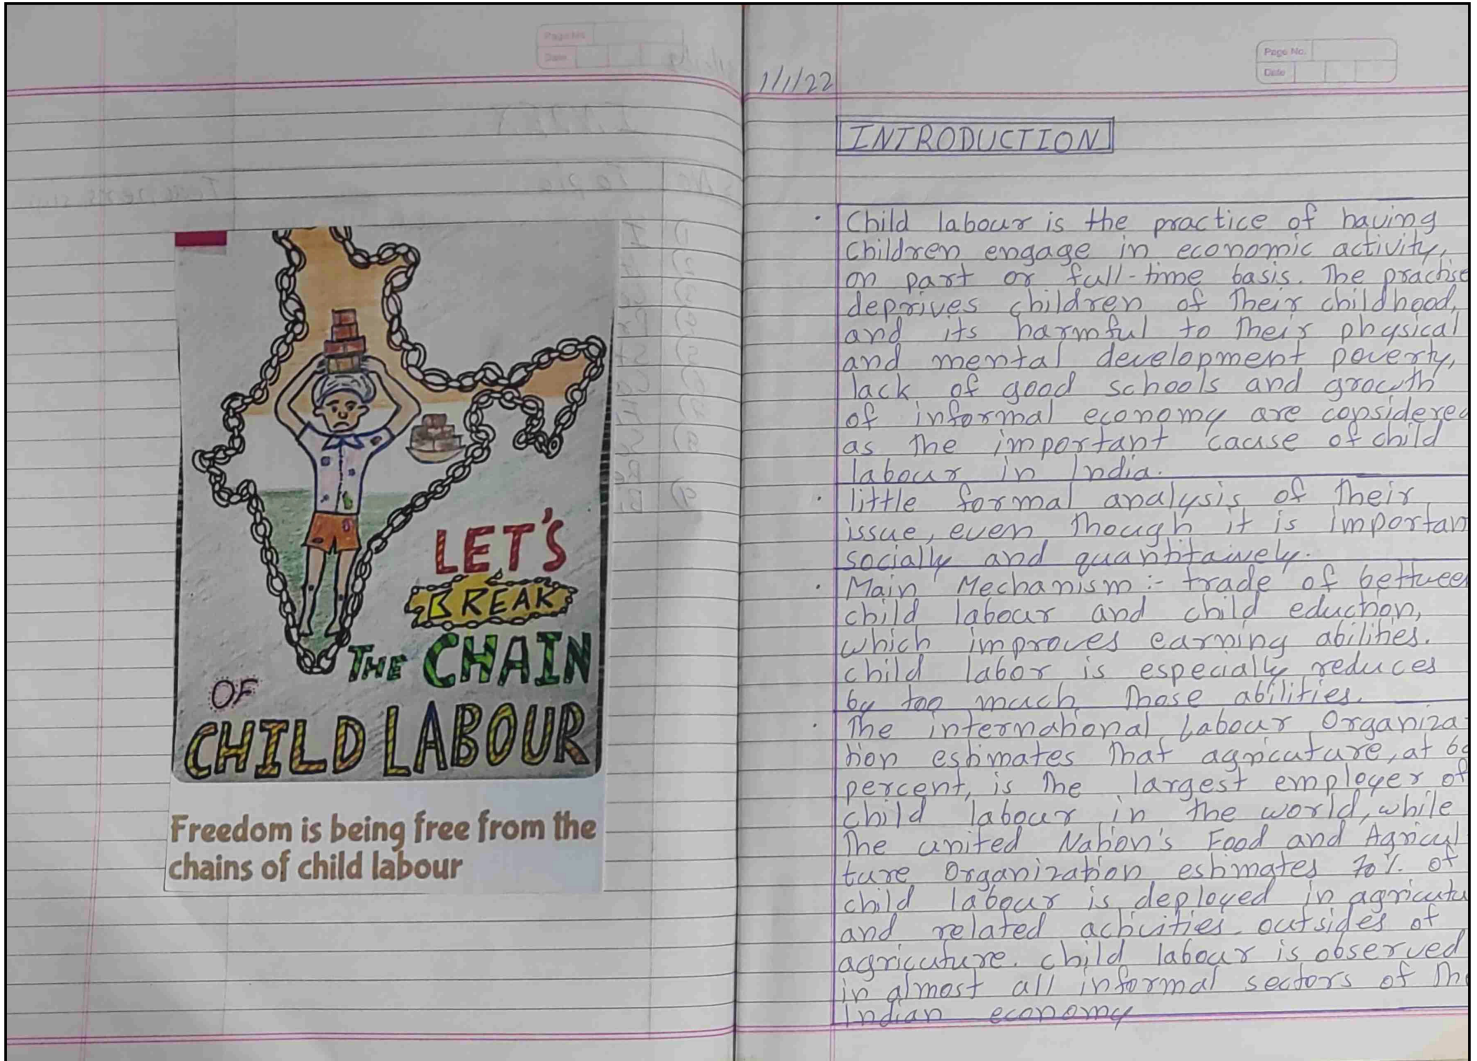 Page No.
Date
LET'S
BREAK
THE CHAIN
OF
CHILD LABOUR
Freedom is being free from the
chains of child labour
Page No.
Date
1/1/22
INTRODUCTION
• Child labour is the practice of having
children engage in economic activity,
on part or full-time basis. The practise
deprives children of their childhood,
and its harmful to their physical
and mental development poverty,
lack of good schools and growth
of informal economy are considered
as the important cause of child
labour in India.
• little formal analysis of their
issue, even though it is importan
socially and quantitaively.
• Main Mechanism :- trade of bettwee
child labour and child eduction,
which improves earning abilities.
child labor is especially reduces
by too much those abilities.
• The international Labour Organiza-
tion estimates that agricuture, at 60
percent, is the largest employer of
child labour in the world, while
the united Nation's Food and Agricul
ture Organization estimates 70%. of
child labour is deployed in agricutu
and related activities. outsides of
agricuture. child labour is observed
in almost all informal sectors of the
Indian economy